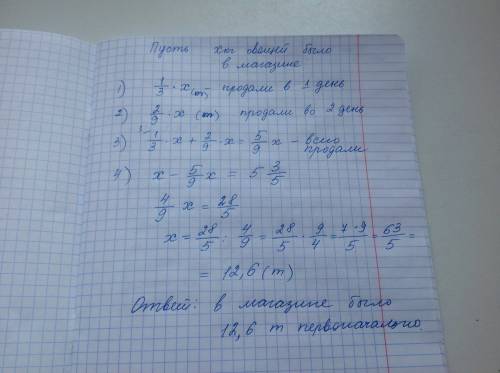 Пусть х кг овощей было
в магазине
1) 1/3 · x (т) продали в 1 день
2) 2/9 · x (т) продали во 2 день
3) 1/3 · x + 2/9 · x = 5/9 x - всего
продали
4) x - 5/9 x = 5 3/5
4/9 x = 28/5
x = 28/5 : 4/9 = 28/5 · 9/4 = 7·9/5 = 63/5 =
= 12,6 (т)
Ответ: в магазине было
12,6 т первоначально.